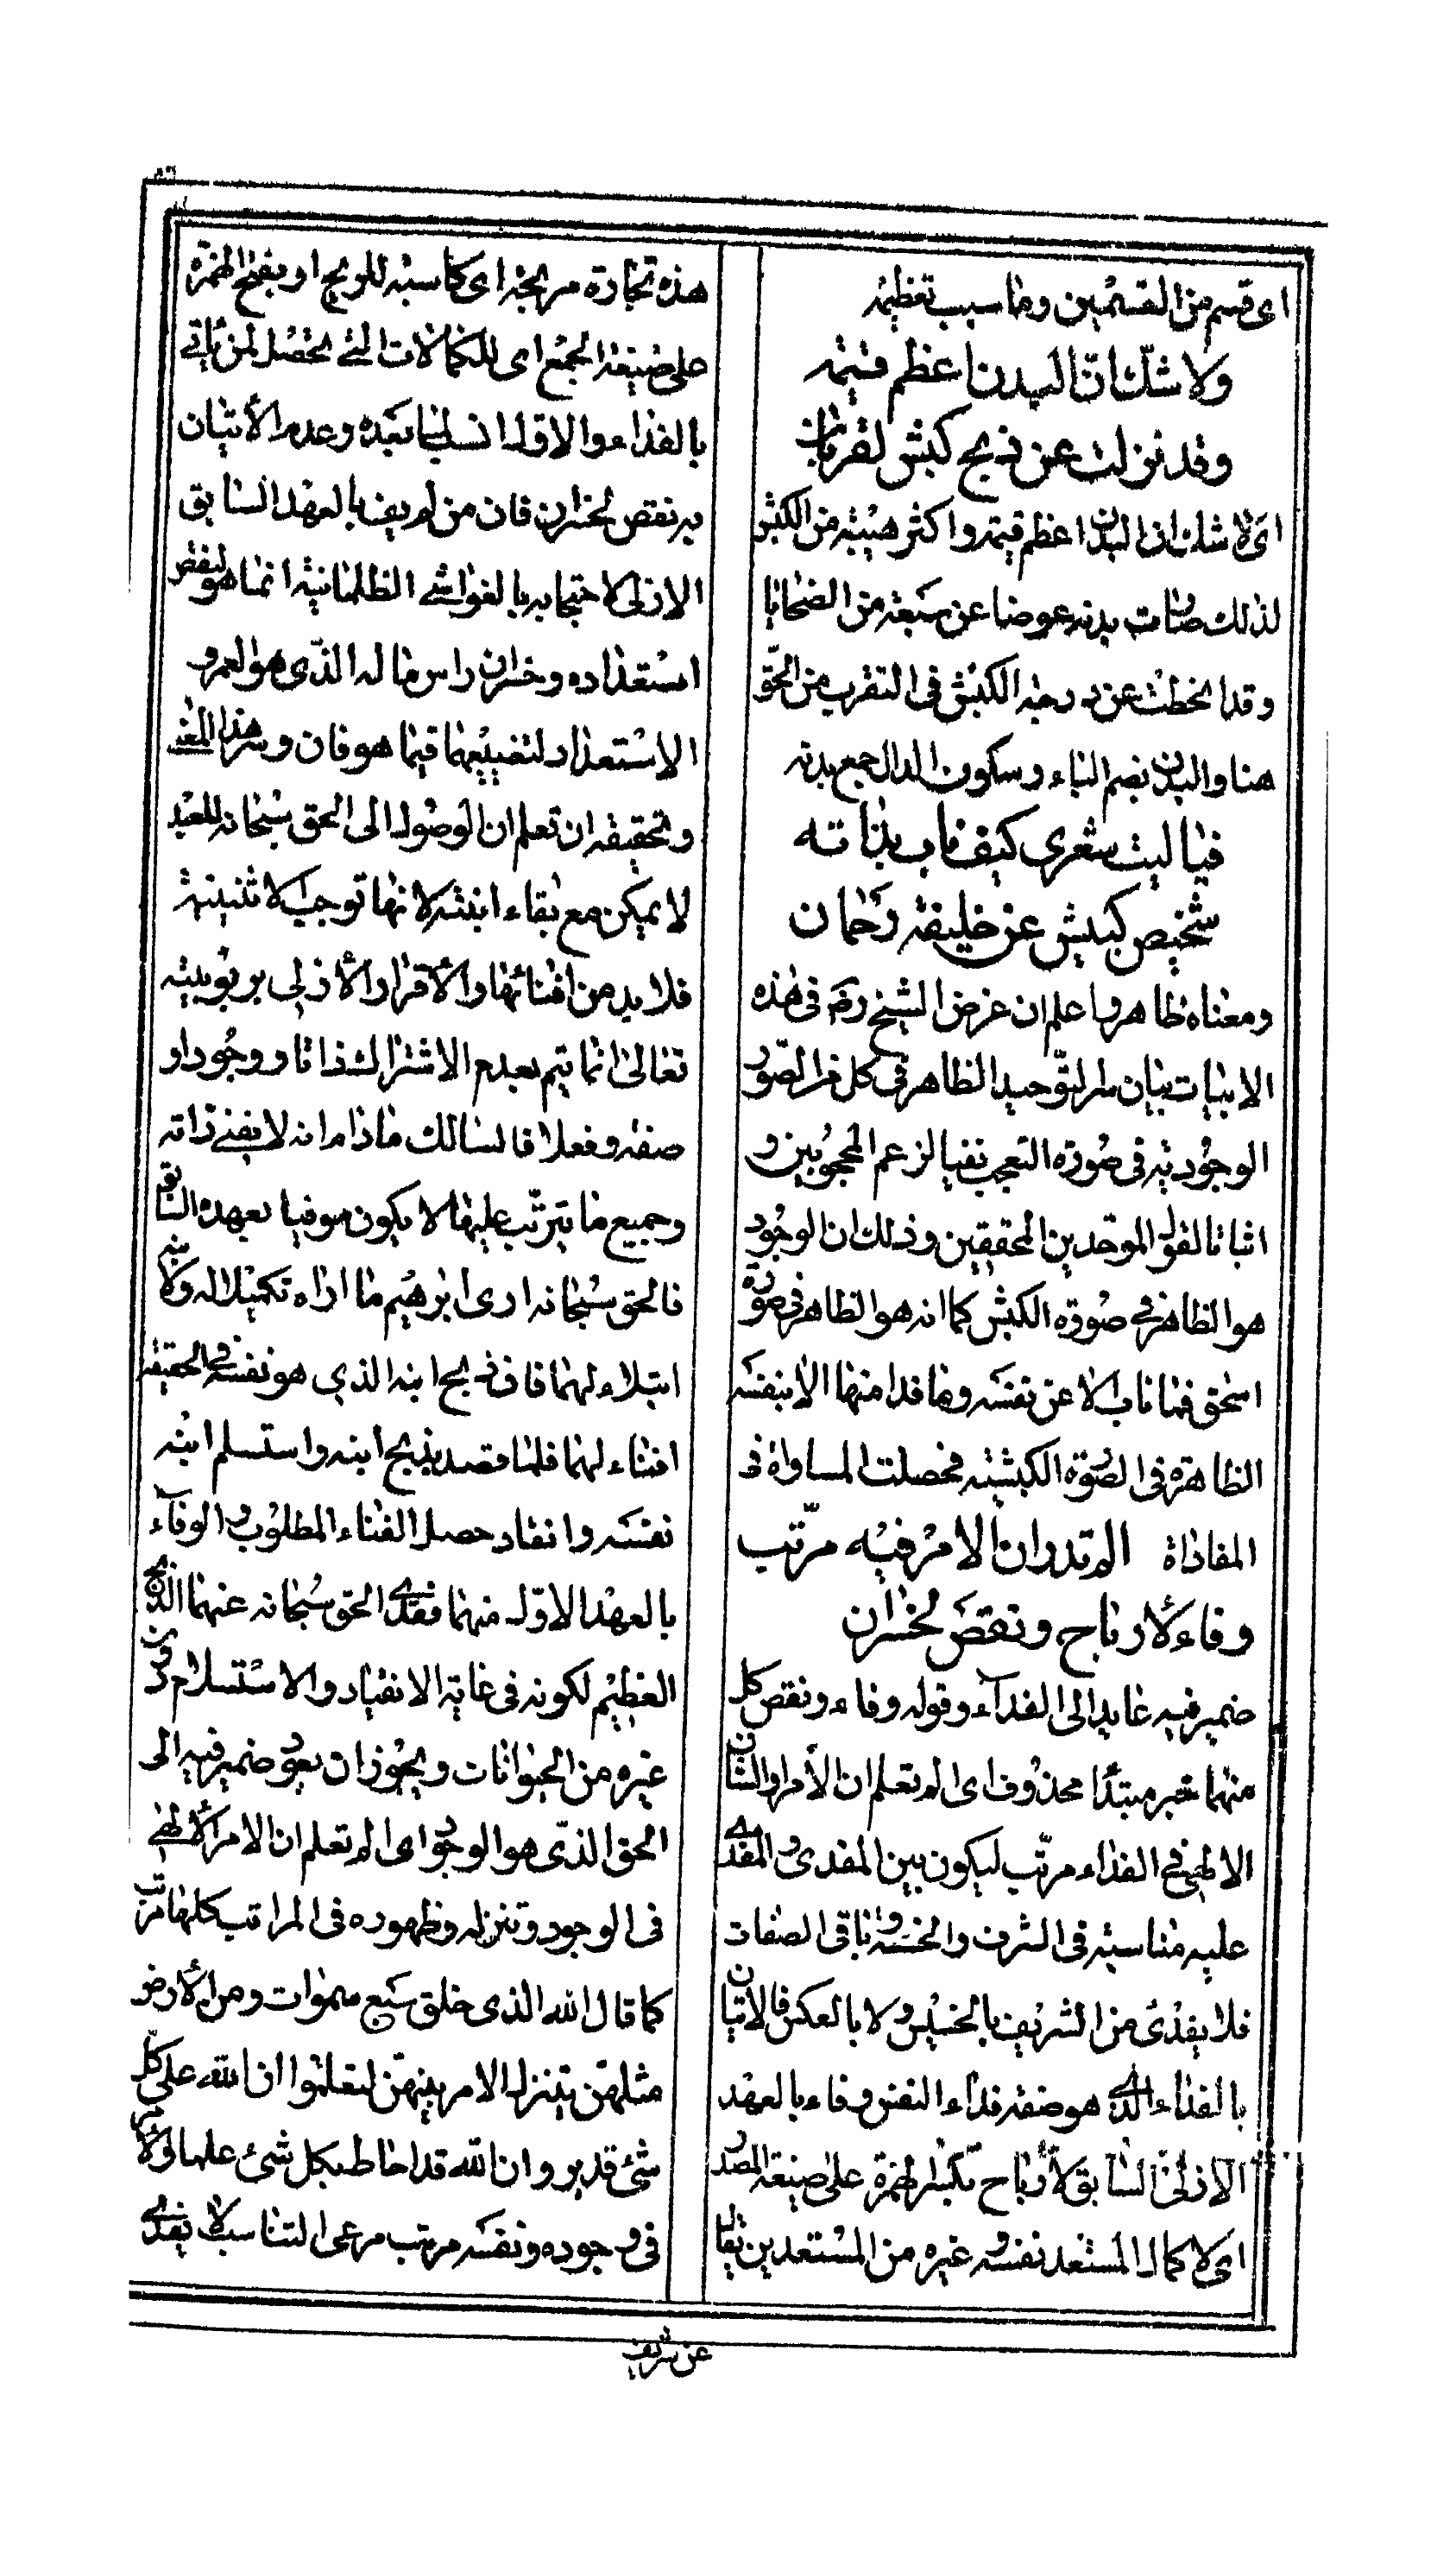 اى قسم من القسمين وما سبب تعظيمه
ولا شك ان البدن اعظم قيمه
وقد نزلت عن ذبح كبش لقربان
اى لا شك ان البدن اعظم قيمه واكثر هيبه من الكبش
لذلك صارت بدنه عوضا عن سبعة من الضحايا
وقد انحطت عن درجه الكبش فى التقرب من الحق
هنا والبدن بضم الباء وسكون الدال جمع بدنه
فيا ليت شعرى كيف ناب بذاته
شخيص كبيش عن خليفة رحمان
ومعناه ظاهر واعلم ان غرض الشيخ رض فى هذه
الابيات بيان سر التوحيد الظاهر فى كل من الصور
الوجوديه فى صورة التعجب نفيا لزعم المحجوبين و
اثباتا لقول الموحدين المحققين وذلك ان الوجود
هو الظاهر فى صورة الكبش كما انه هو الظاهر فى صورة
اسحق فما ناب الا عن نفسه وما فدا منها الا بنفسه
الظاهرة فى الصورة الكبشيه فحصلت المساواة فى
المفاداة الم تدر ان الامر فيه مرتب
وفاء لارباح ونقص لخسران
ضمير فيه عايد الى الفدآء وقوله وفاء ونقص كل
منهما خبر مبتدأ محذوف اى الم تعلم ان الامر والشان
الالهى فى الفداء مرتب ليكون بين المفدى والمفدى
عليه مناسبه فى الشرف والخسه وباقى الصفات
فلا يفدى من الشريف بالخسيس ولا بالعكس فالاتيان
بالفداء الذى هو صفة فداء النفس وفاء بالعهد
الازلى السابق لارباح بكسر الهمزة على صيغة المصدر
اى لاكمال المستعد نفسه وغيره من المستعدين يقال
هذه تجارة مربحه اى كاسبه للربح او بفتح الهمزة
على صيغة الجمع اى للكمالات التى تحصل لمن يأتى
بالفداء والاول انسب لما بعده وعدم الاتيان
به نقص لخسران فان من لم يف بالعهد السابق
الازلى لاحتجابه بالغواشى الظلمانية انما هو لنقص
استعداده وخسران راس ماله الذى هو العمر و
الاستعداد لتضييعهما فيما هو فان وسر هذا المعنى
وتحقيقه ان تعلم ان الوصول الى الحق سبحانه للعبد
لا يمكن مع بقاء انيته لانها توجب الاثنينية
فلا بد من افنائها والاقرار الازلى بربوبيته
تعالى انما يتم بعدم الاشتراك ذاتا ووجودا و
صفة وفعلا فالسالك ما دام انه لا يفنى ذاته
وجميع ما يترتب عليها لا يكون موفيا بعهده السابق
فالحق سبحانه ارى ابرهيم ما اراه تكميلا له ولابنه
ابتلاء لهما فان ذبح ابنه الذى هو نفسه فى الحقيقه
افناء لهما فلما قصد بذبح ابنه واستسلم ابنه
نفسه وانقاد حصل الفناء المطلوب والوفآء
بالعهد الاول منهما ففدى الحق سبحانه عنهما الذبح
العظيم لكونه فى غاية الانقياد والاستسلام دون
غيره من الحيوانات ويجوز ان يعود ضمير فيه الى
الحق الذى هو الوجود اى الم تعلم ان الامر الالهى
فى الوجود وتنزله وظهوره فى المراتب كلها مرتب
كما قال الله الذى خلق سبع سموات ومن الارض
مثلهن يتنزل الامر بينهن لتعلموا ان الله على كل
شئ قدير وان الله قد احاط بكل شئ علما فالامر
فى وجوده ونفسه مرتب مرعى التناسب لا يفدى
عن شريف